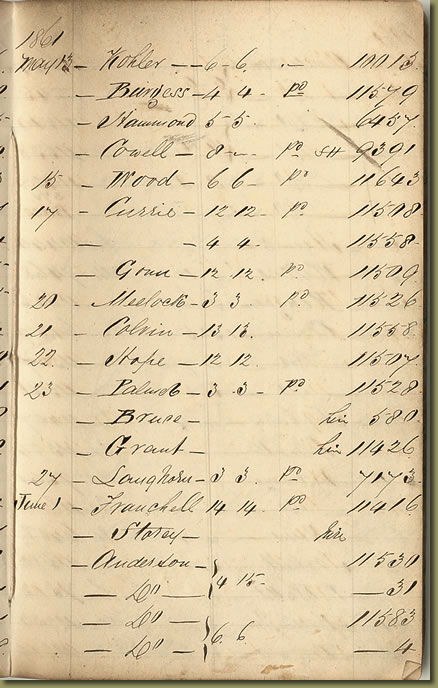 1861
May 13 – Kohler – – 6 – 6. – 10013
– Burgess – 4 4 – pd 11579
– Hammond 5 – 5 – 6457
– Cowell – 8 – – pd SH 9391
15 – Wood – 6 6 – pd 11643
17 – Currie – 12 12 – pd 11598
– – 4 4 – 11558
– – 12 12 – pd 11509
20 – 3 3 – pd 11526
21 – Colvin – 13 13. 11558
22 – Hope – 12 12 – 11507
23 – 3 – 3 – pd 11528
– Bruse – hire 580
– Grant – hire 11426
27 – Langhorn – 3 3 – pd 7173
June 1 – 14 14 – pd 11416
– Storey – hire
– Anderson – 11530
– Do } 4 15 – – 31
– Do 11583
– Do } 6. 6. – 4